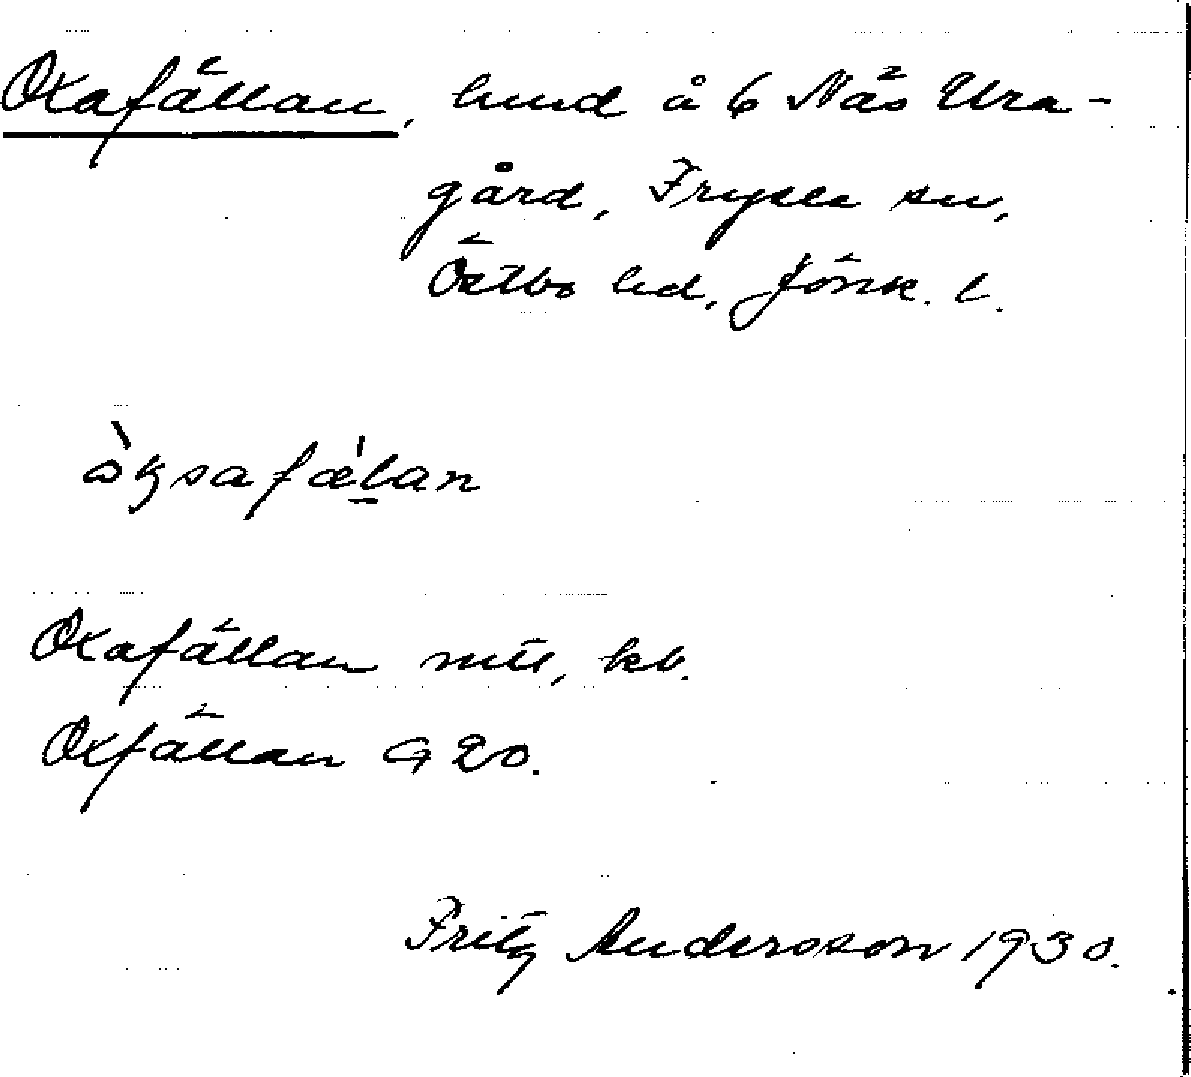 Oxafällan, lund å 6 Näs Ura-
gård, Fryele sn,
Östbo hd, Jönk. l.
òksafǽlan
Oxafällan mtl, kb.
Oxfällan G 20.
Fritz Andersson 1930.